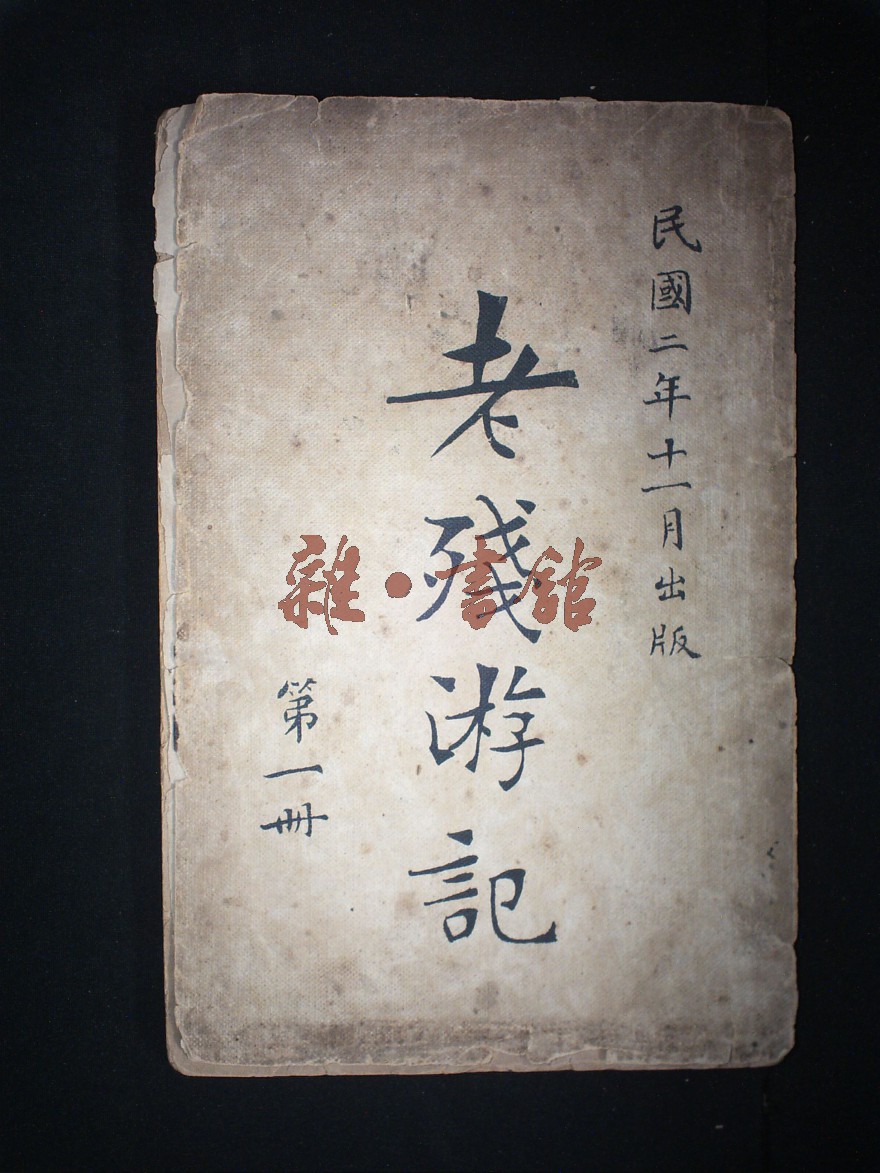 民國二年十一月出版
老殘游記
第一冊
雜·書館